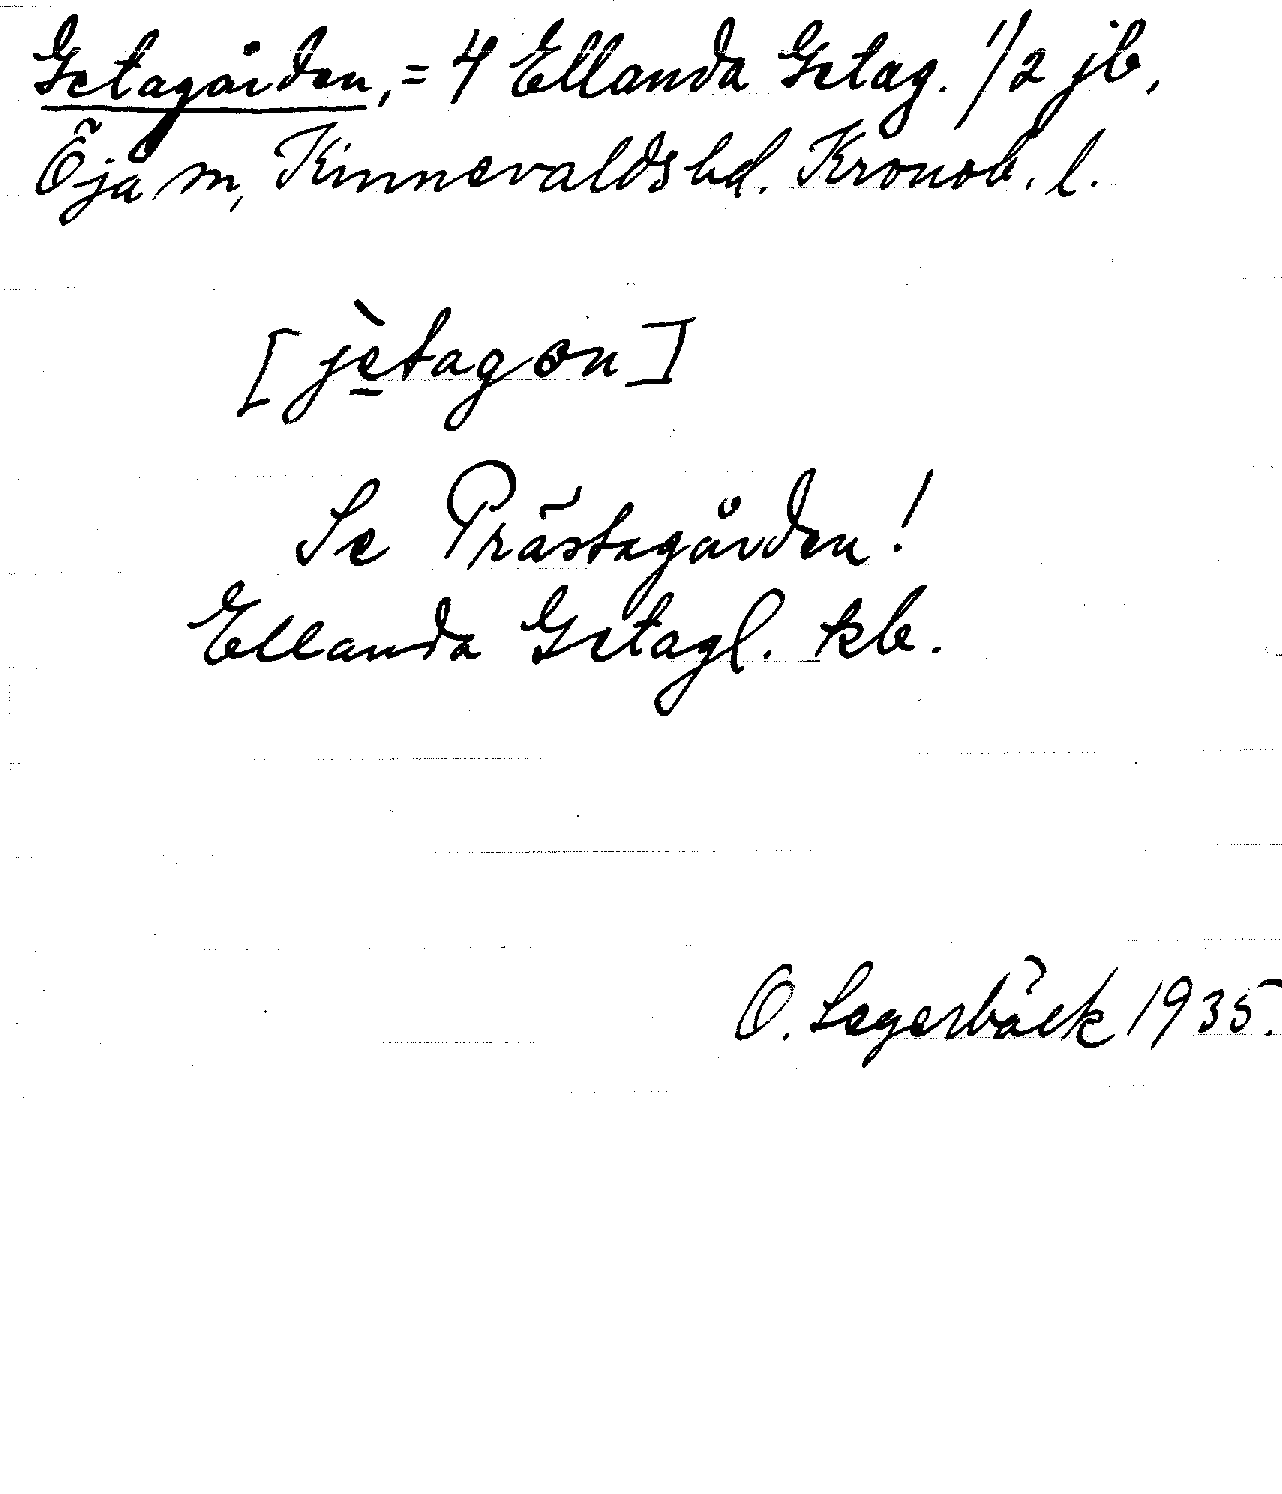 Getagården, = 4 Ellanda Getag. 1/2 jb,
Öja sn, Kinnevalds hd. Kronob. l.
[jè̱tagon]
Se Prästagården!
Ellanda Getagl. kb.
O. Lagerbäck 1935.